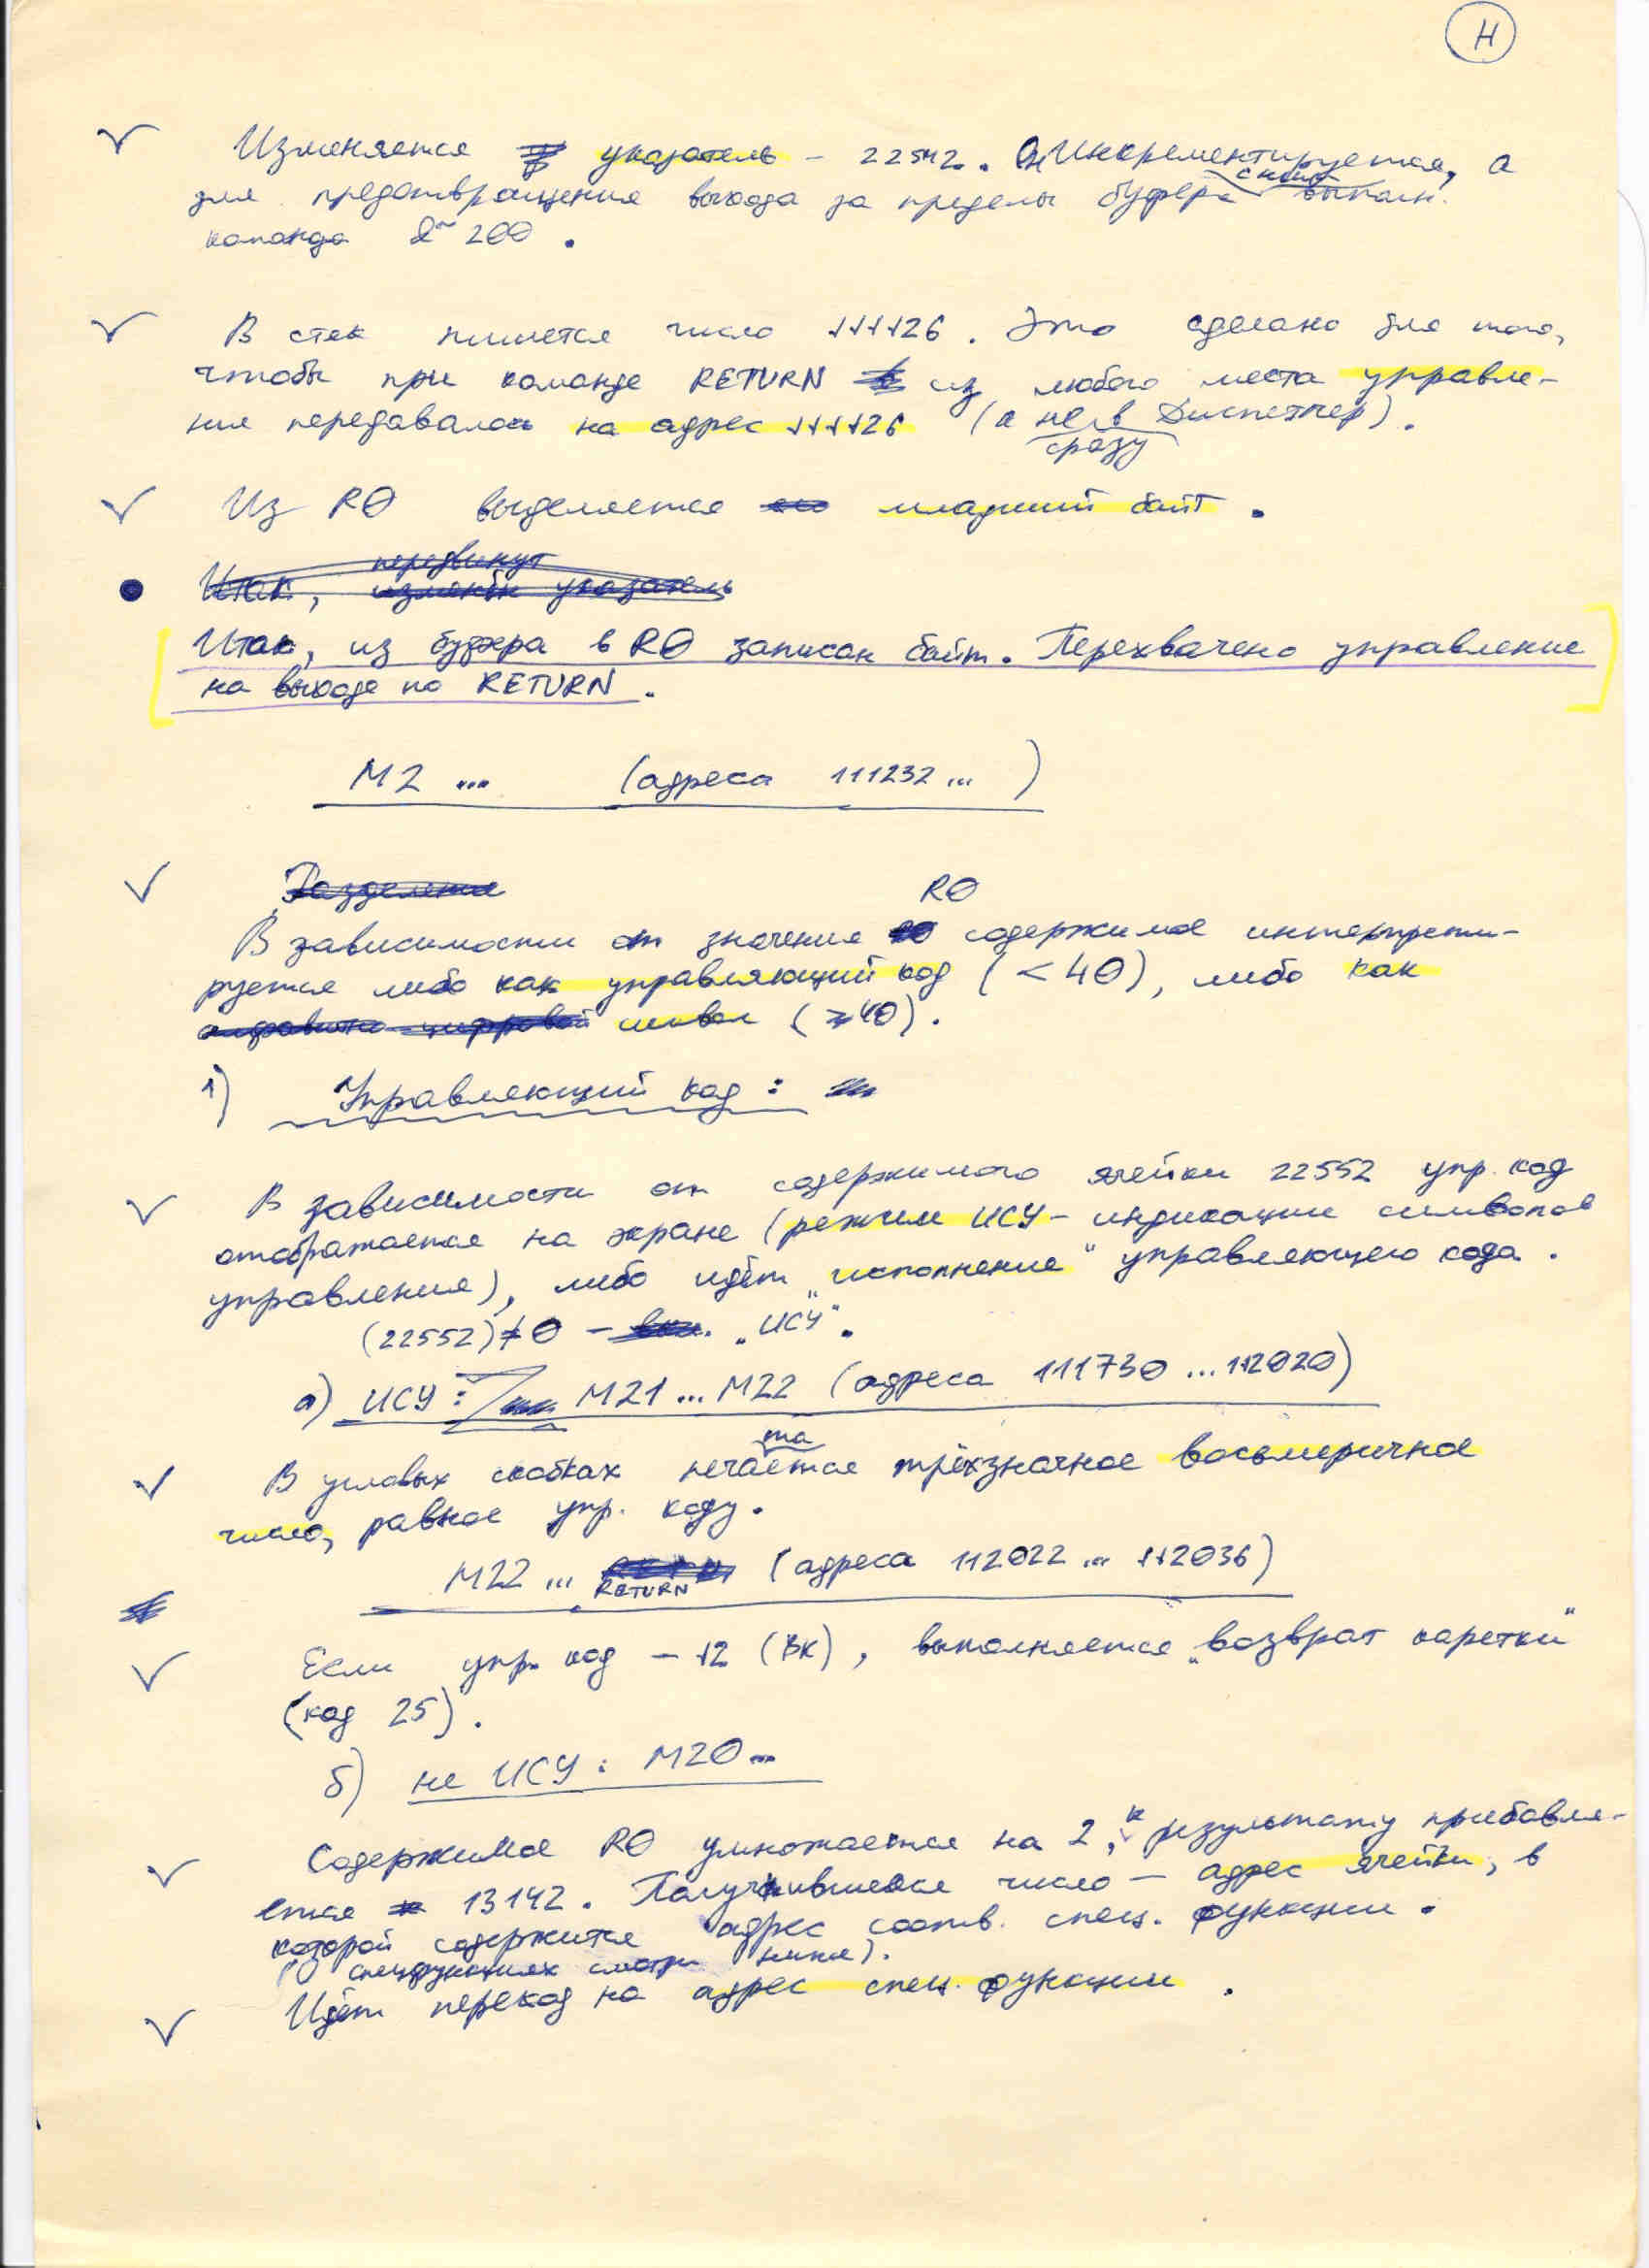 Н
Изменяется указатель – 22542. Он инкрементируется, а
для предотвращения выхода за пределы буфера с ним выполн.
команда &~200.
В стек пишется число 111126. Это сделано для того,
чтобы при команде RETURN из любого места управле-
ние передавалось на адрес 111126 (а не в Диспетчер).
сразу
Из R0 выделяется младший байт.
передвинут
Итак, указатель
Итак, из буфера в R0 записан байт. Перехвачено управление
на выходе по RETURN.
M2 ... (адреса 111232 ... )
R0
В зависимости от значения содержимое интерпрети-
руется либо как управляющий код (<40), либо как
символ (≥40).
1) Управляющий код:
В зависимости от содержимого ячейки 22552 упр. код
отображается на экране (режим ИСУ – индикации символов
управления), либо идёт "исполнение" управляющего кода.
(22552)≠0 – „ИСУ".
а) ИСУ: M21 ... M22 (адреса 111730 ... 112020)
та
В угловых скобках печается трёхзначное восьмеричное
число, равное упр. коду.
M22 ... RETURN (адреса 112022 ... 112036)
Если упр. код – 12 (ВК), выполняется „возврат каретки"
(код 25).
б) не ИСУ: M20 ...
Содержимое R0 умножается на 2, к результату прибавля-
ется 13142. Получившееся число – адрес ячейки, в
которой содержится адрес соотв. спец. функции.
(О спецфункциях смотри ниже).
Идёт переход на адрес спец. функции.